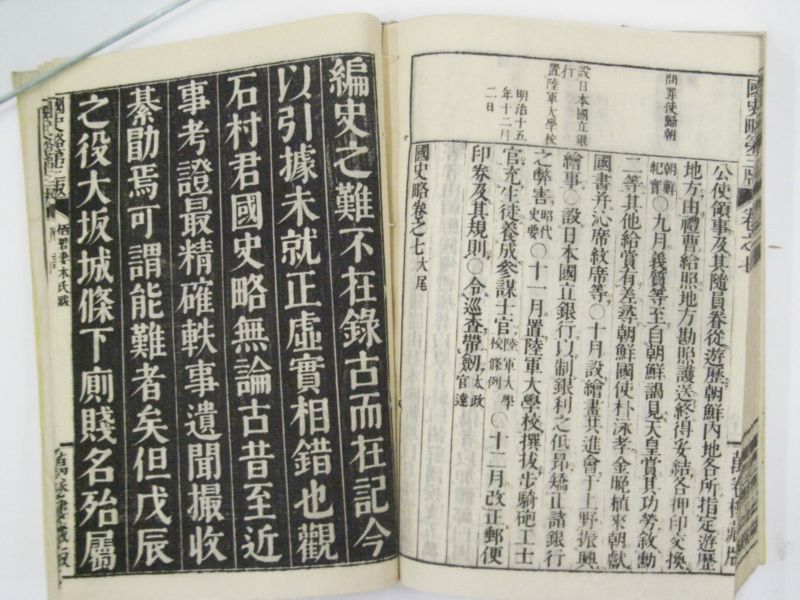 卷之七
萬卷樓藏版
問罪使歸朝
設日本國立銀
行
置陸軍大學校
公使領事及其隨員眷從遊歷朝鮮內地各所指定遊歷
地方由禮曹給照地方勘照護送終得妥結各押印交換
朝鮮
紀實〇九月義質等至自朝鮮謁見天皇賞其功勞敘勳
二等其他給賞有差尋朝鮮國使朴泳孝金晚植來朝獻
國書并沁席紋席等〇十月設繪畫共進會于上野振興
繪事〇設日本國立銀行以制銀利之低昂矯正諸銀行
之弊害昭代
史要〇十一月置陸軍大學校撰拔步騎砲工士
官充生徒養成參謀士官陸軍大學
校條例〇十二月改正郵便
印券及其規則〇令巡査帶劒太政
官達
明治十五
年十二月
二日
國史略卷之七大尾
編史之難不在錄古而在記今
以引據未就正虛實相錯也觀
石村君國史略無論古昔至近
事考證最精確軼事遺聞撮收
綦勖焉可謂能難者矣但戊辰
之役大坂城條下廁賤名殆屬
國史略第二版
栖碧妻木氏跋